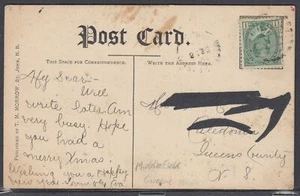 Post Card.
THIS SPACE FOR CORRESPONDENCE.
WRITE THE ADDRESS HERE.
PUBLISHED BY T. H. MORROW, ST. JOHN, N.B.
My Dear:-
Will
write later. Am
very busy. Hope
you had a
merry Xmas.
Wishing you a Happy
new year
M
Caledonia
Queens County
N. S.
Middlefield